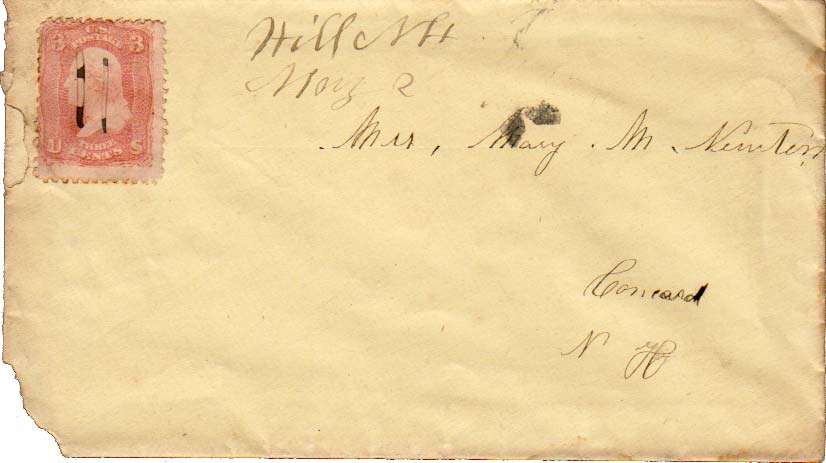 3 U.S. 3
POSTAGE
U THREE S
CENTS
Hill NH
May 2
Mrs, Mary. M. Newton
Concord
N H